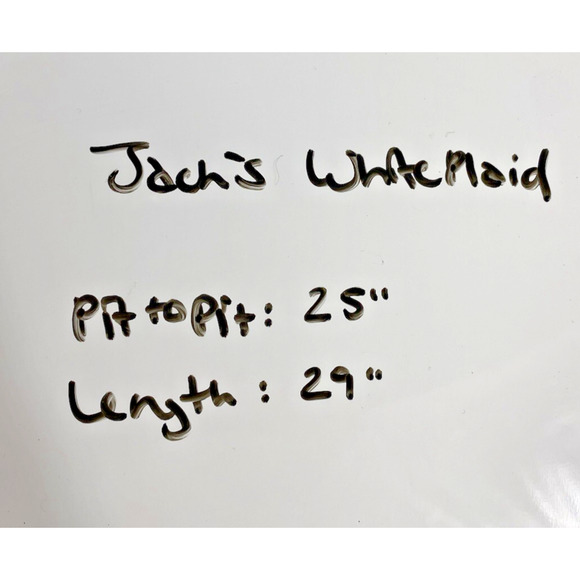 Jach's White Plaid
Pit to Pit: 25"
Length: 29"